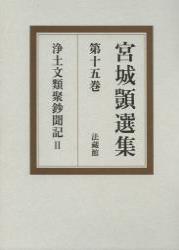 宮城顗選集
第十五巻
法藏館
浄土文類聚鈔聞記Ⅱ